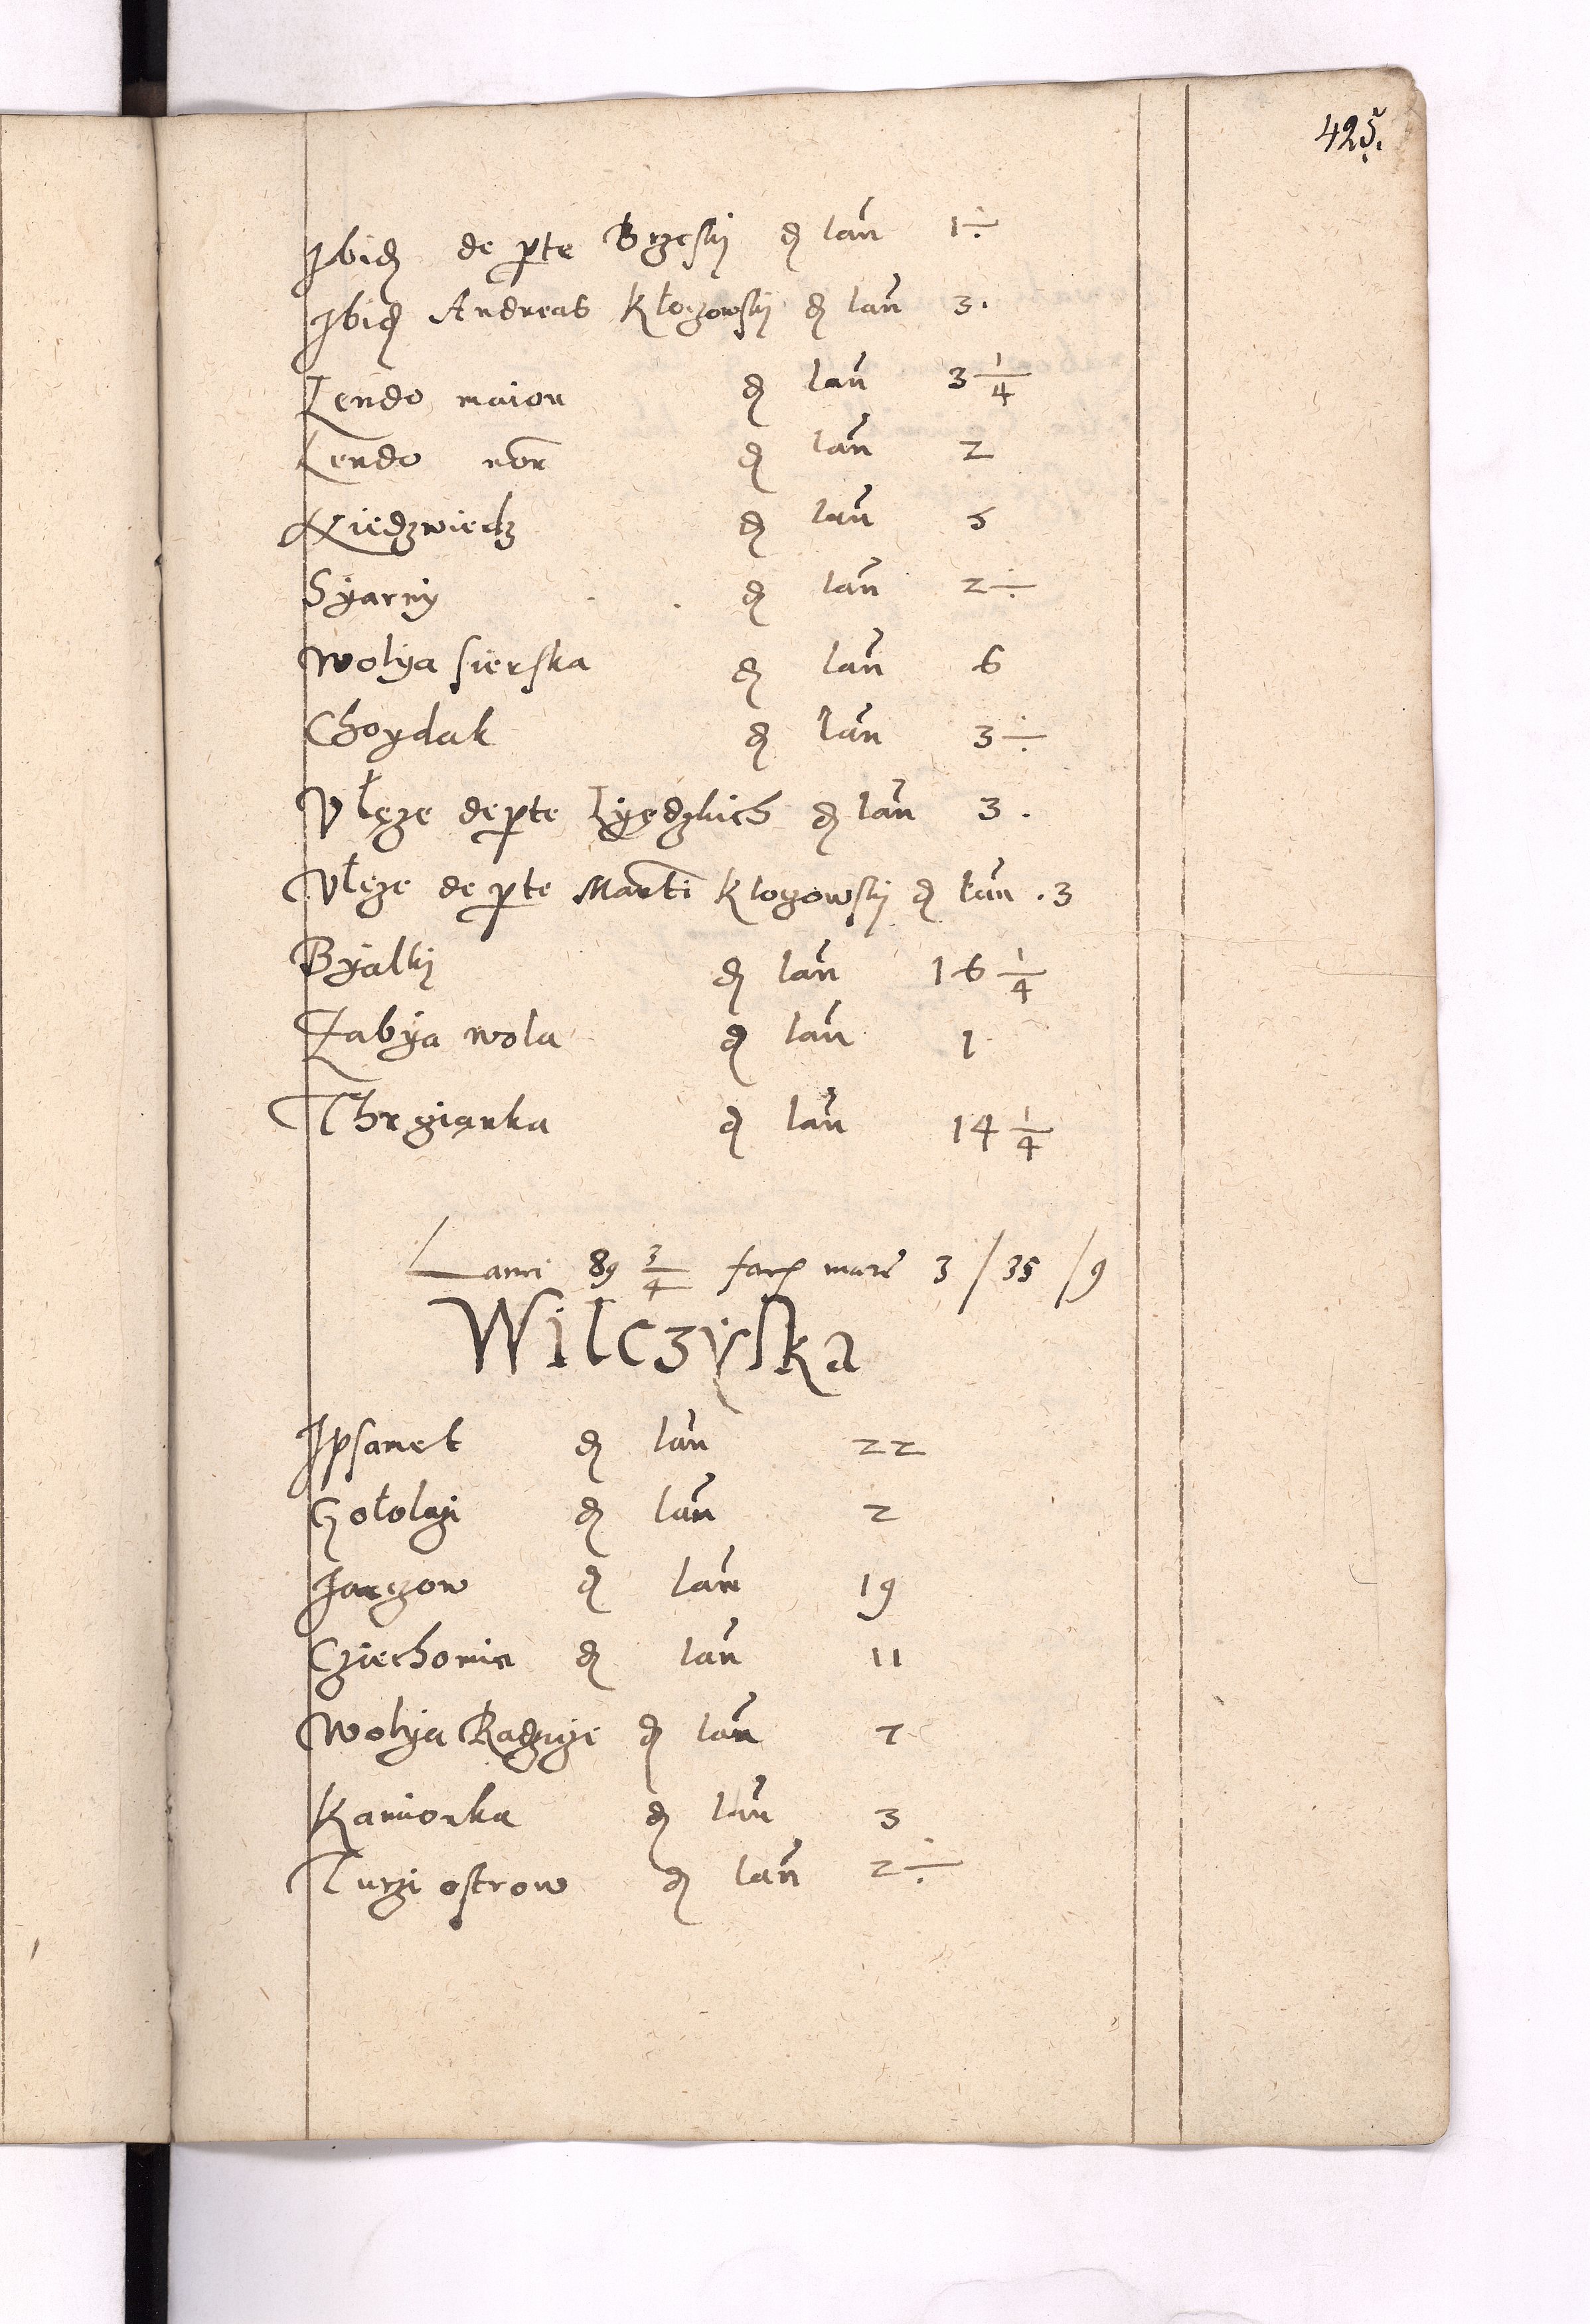 425.
Ibid de pte Brzeski d lan 1 ÷
Ibid Andreas Klozowski d lan 3.
Lendo maiou d lan 3 1/4
Lendo nor d lan 2
Niedzwiedz d lan 5
Syarny d lan 2 ÷
Wolya sierska d lan 6
Choydak d lan 3 ÷
Vłęze de pte Lyędzkich d lan 3.
Vłęze de pte Marti Klozowski d lan .3
Byalki d lan 16 1/4
Zabya wola d lan 1
Thrzianka d lan 14 1/4
Lanei 89 3/4 fac marc 3 / 35 / 9
Wilczyska
Ipsamet d lan 22
Gołolazi d lan 2
Jarczow d lan 19
Cziechomin d lan 11
Wolya Radzyze d lan 7
Kamionka d lan 3
Turzi ostrow d lan 2 ÷